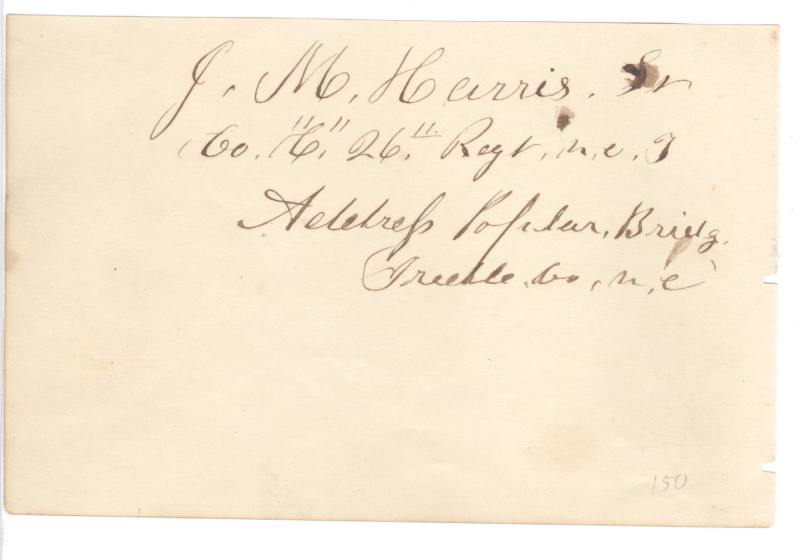 J. M. Harris. Sr
Co. "C". 26". Regt. N. C. T
Address Popular. Bridg.
Co, N. C
150